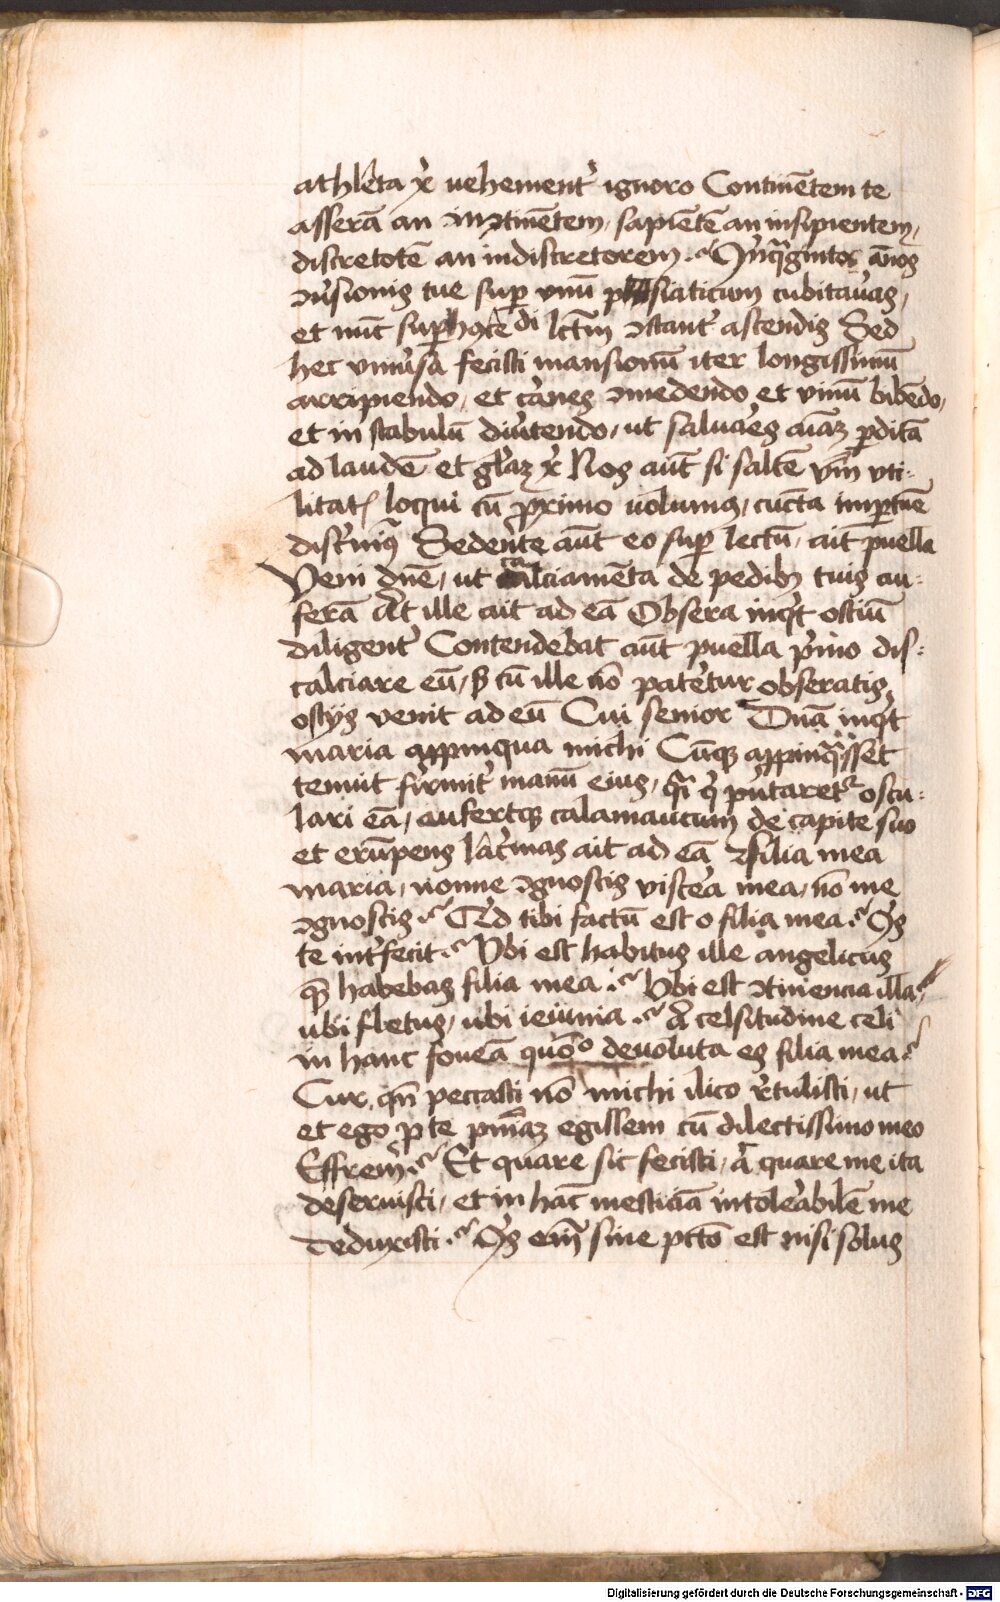 athleta xp̄i uehement̉ ignoro Continētem te
asserā an inↄtinētem, sapiētē an insipientem,
discretotē an indiscretorem. Qͥnqͣgintos ān̄os
ↄuersionis tue sup vnū psiaticum cubitauas,
et nūc sup hᵒcce di lectm̄ ↄstant̉ ascendis Sed
hec vniu̓sa fecisti mansionū iter longissimū
arripiendo, et carnes ↄmedendo et vinū bibēdo,
et in stabulū diu̓tendo, ut saluares aīaz p̱ditā
ad laudē et gl̓iaz xp̄i Nos aūt si saltē vnū vti:
litatꝭ loqui cū proximo uolumus, cūcta imp̱tūe
discernimꝰ Sedente aūt eo sup̱ lectū, ait puella
Veni dn̄e, ut calciamēta de pedibꝫ tuis au:
ferā At ille ait ad eā Obsera inqͥt ostiū
diligent̉ Contendebat aūt puella pͥmo dis:
calciare eū, sꝫ cū ille nō pateretur obseratis
ostijs venit ad eū Cui senior Dn̄a inqͥt
maria app̱inqua michi Cūqꝫ app̱inqͣsset
tenuit firmit̉ manū eius, qͣsi qͥ putaretᷣ oscu:
lari eā, aufertqꝫ calamaucum de capite suo
et erūpens lacͥmas ait ad eā filia mea
maria, nonne ↄgnoscis viscera mea, nō me
ↄgnoscis? Qͥd tibi factū est o filia mea? Qͥs
te int̉fecit? Vbi est habitus ille angelicus
qͤ habebas filia mea? Vbi est ↄtinencia illa?
ubi fletus, ubi ieiunia? A celsitudine celi
in hanc foueā quōᵒ deuoluta es filia mea?
Cur, qn̄ peccasti nō michi ilico retulisti, ut
et ego p̱ te pn̄iaz egissem cū dilectissimo meo
Effrem? Et quare sic fecisti, aͭ quare me ita
deseruisti, et in hāc mesticiā intolerabilē me
deduxisti? Qͥs em̄ sine pctō est nisi solus
Digitalisierung gefördert durch die Deutsche Forschungsgemeinschaft - DFG